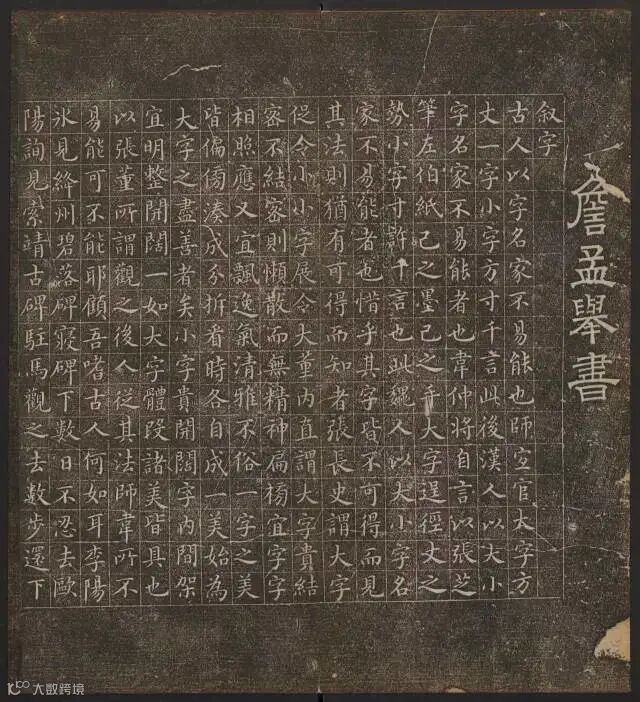 詹孟舉書
叙字
古人以字名家不易能也師宜官大字方
丈一字小字方寸千言此後漢人以大小
字名家不易能者也韋仲將自言以張芝
筆左伯紙己之墨己之手大字逞徑丈之
勢小字寸許千言也此魏人以大小字名
家不易能者也惜乎其字皆不可得而見
其法則猶有可得而知者張長史謂大字
促令小小字展令大董內直謂大字貴結
密不結密則懶散而無精神扁榜宜字字
相照應又宜飄逸氣清雅不俗一字之美
皆偏傍湊成分拆看時各自成一美始為
大字之盡善者矣小字貴開闊字內間架
宜明整開闊一如大字體段諸美皆具也
以張董所謂觀之後人從其法師韋所不
易能可不能耶顧吾嗜古人何如耳李陽
氷見絳州碧落碑寢碑下數日不忍去歐
陽詢見索靖古碑駐馬觀之去數步還下
大数跨境